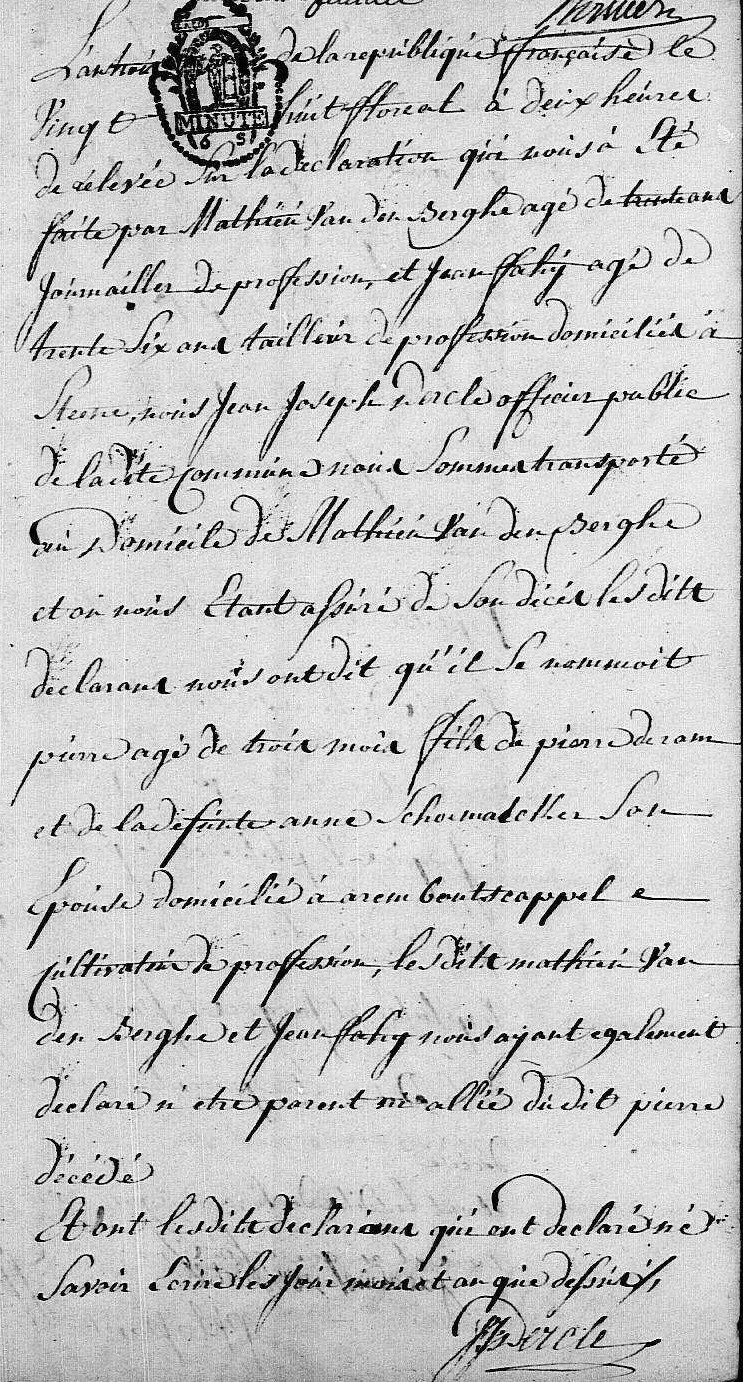 L'an trois de la republique française le
Vingt huit floreal à deux heures
MINUTE
de relevée Sur la declaration qui nous à Eté
faite par Mathieu Van den Berghe agé de trente ans
Journailler de profession, et Jean ffahÿ agé de
trente Six ans tailleur de profession domiciliés à
Steene, nous Jean Joseph dercle officier public
de la dite Commune nous Sommes transporté
au Domicile de Mathieu Van den Berghe
et ou nous Etant assuré de Son décés les dits
declarans nous ont dit qu'il Se nommoit
pierre agé de trois mois ffils de pierre deram
et de la defunte anne Son
Epouse domicilié à arembouts cappel e
Cultivateur de proffession, les dits mathieu Van
den Berghe et Jean ffahy nous ayant egalement
declaré n'etre parent ni allié du dit pierre
décédé
Et ont les dits declarans qui ont declaré né
Savoir Ecrire les Jour mois et an que dessus
JJ Dercle